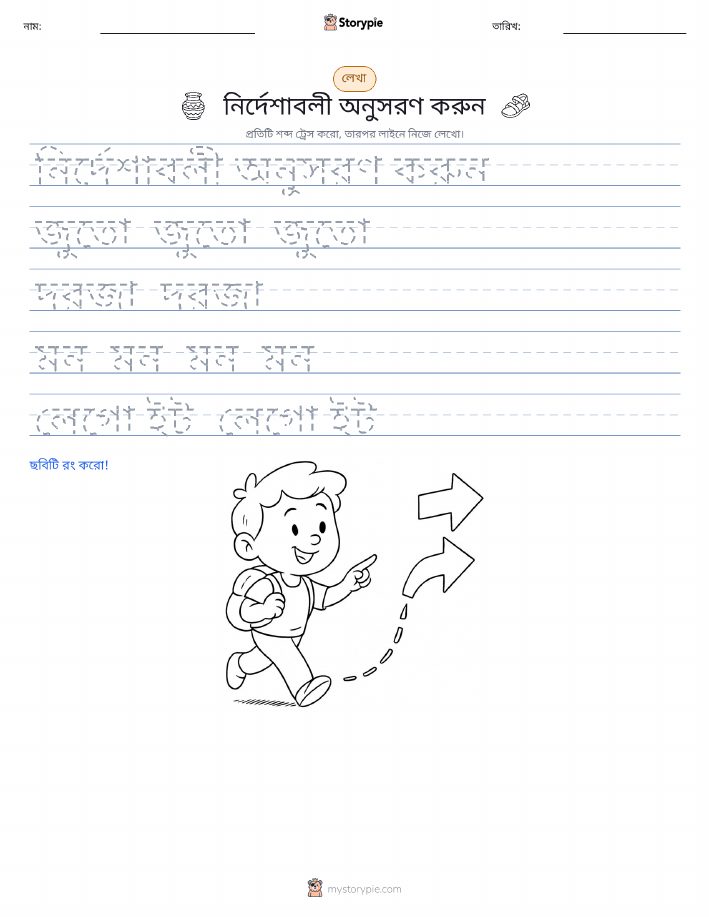 নাম: Storypie তারিখ:
লেখা
নির্দেশাবলী অনুসরণ করুন
প্রতিটি শব্দ ট্রেস করো, তারপর লাইনে নিজে লেখো।
নির্দেশাবলী অনুসরণ করুন
জুতো জুতো জুতো
দরজা দরজা
মন মন মন মন
লেগো ইট লেগো ইট
ছবিটি রং করো!
mystorypie.com